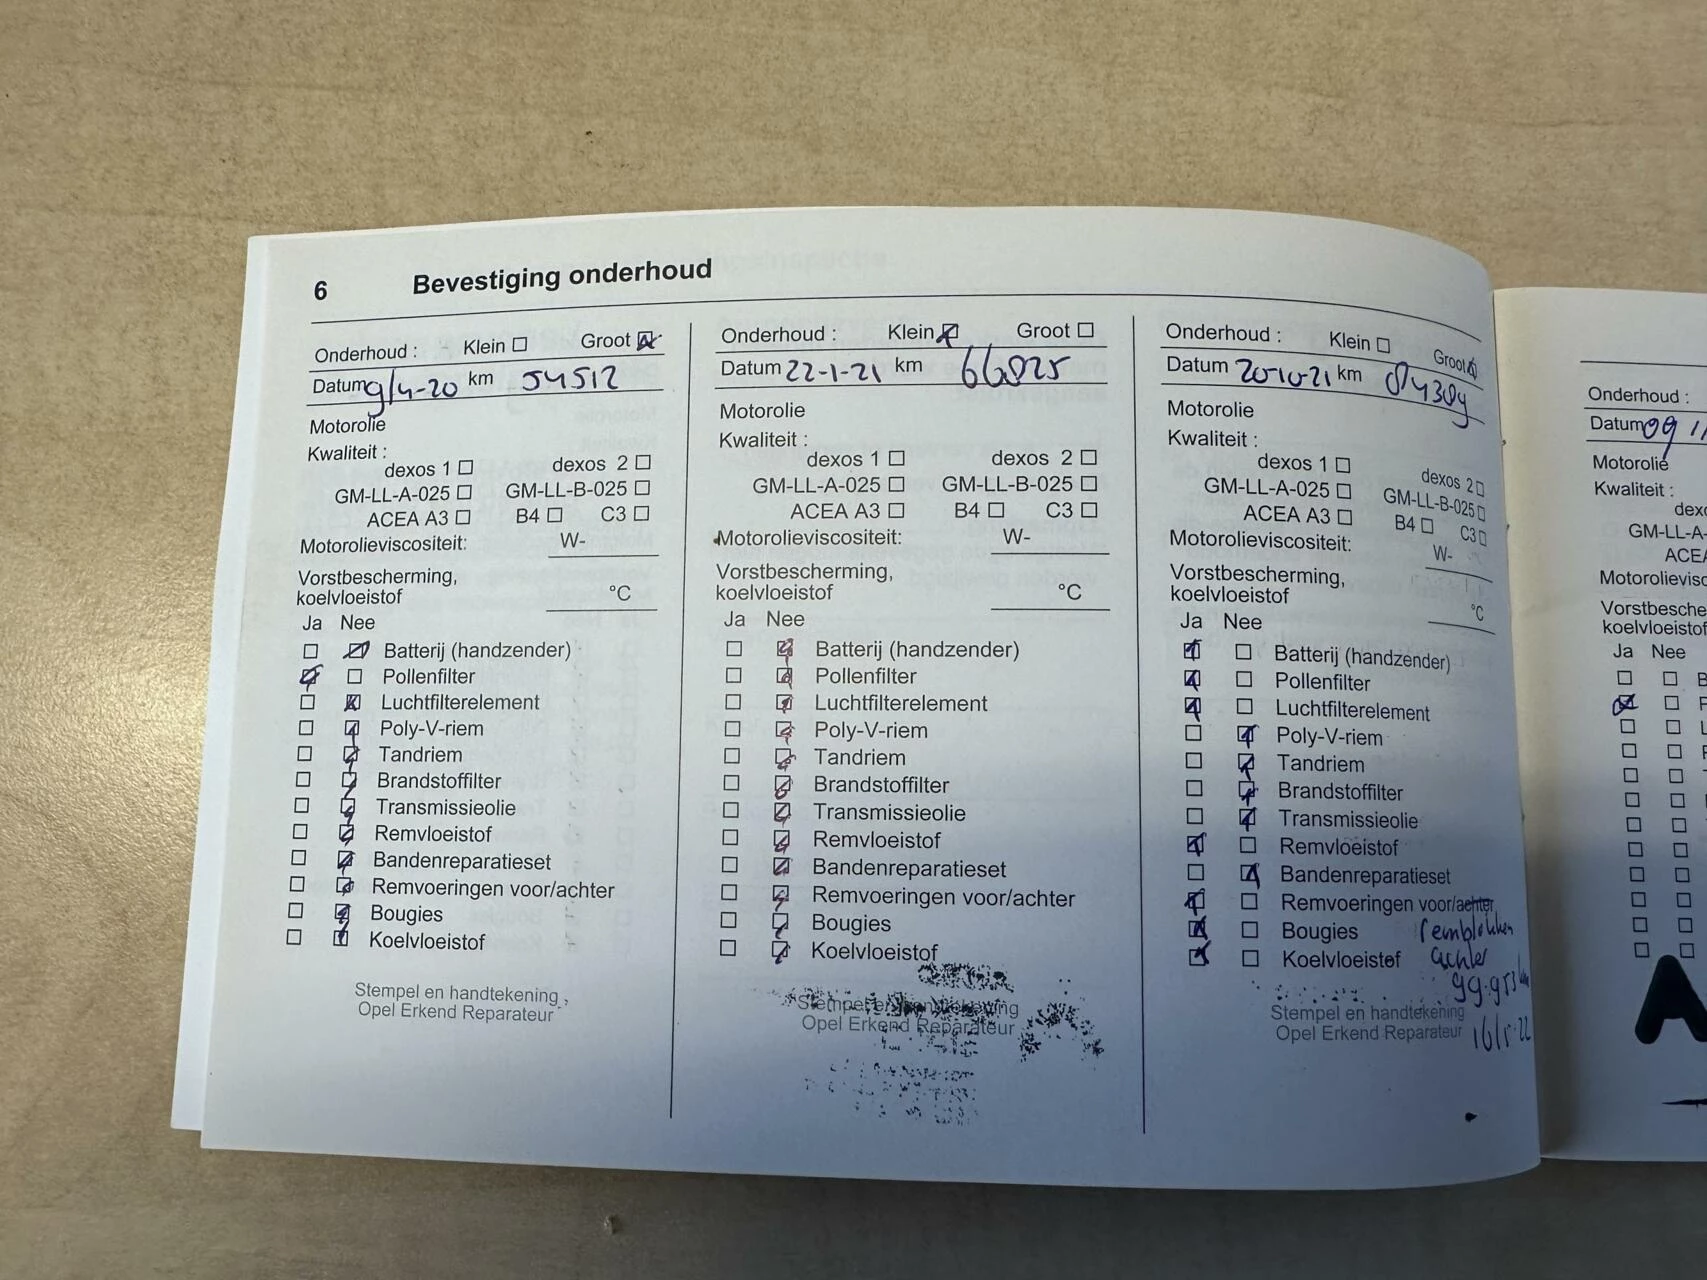 6 Bevestiging onderhoud
Onderhoud : Klein Groot
Datum 9/4-20 km 54512
Motorolie
Kwaliteit :
dexos 1 dexos 2
GM-LL-A-025 GM-LL-B-025
ACEA A3 B4 C3
Motorolieviscositeit: W-
Vorstbescherming,
koelvloeistof °C
Ja Nee
Batterij (handzender)
Pollenfilter
Luchtfilterelement
Poly-V-riem
Tandriem
Brandstoffilter
Transmissieolie
Remvloeistof
Bandenreparatieset
Remvoeringen voor/achter
Bougies
Koelvloeistof
Stempel en handtekening
Opel Erkend Reparateur
Onderhoud : Klein Groot
Datum 22-1-21 km 66025
Motorolie
Kwaliteit :
dexos 1 dexos 2
GM-LL-A-025 GM-LL-B-025
ACEA A3 B4 C3
Motorolieviscositeit: W-
Vorstbescherming,
koelvloeistof °C
Ja Nee
Batterij (handzender)
Pollenfilter
Luchtfilterelement
Poly-V-riem
Tandriem
Brandstoffilter
Transmissieolie
Remvloeistof
Bandenreparatieset
Remvoeringen voor/achter
Bougies
Koelvloeistof
Stempel en handtekening
Opel Erkend Reparateur
Onderhoud : Klein Groot
Datum 20-10-21 km
Motorolie
Kwaliteit :
dexos 1 dexos 2
GM-LL-A-025 GM-LL-B-025
ACEA A3 B4 C3
Motorolieviscositeit: W-
Vorstbescherming,
koelvloeistof °C
Ja Nee
Batterij (handzender)
Pollenfilter
Luchtfilterelement
Poly-V-riem
Tandriem
Brandstoffilter
Transmissieolie
Remvloeistof
Bandenreparatieset
Remvoeringen voor/achter
Bougies remblokken
Koelvloeistof achter
Stempel en handtekening
Opel Erkend Reparateur
Onderhoud :
Datum 09
Motorolie
Kwaliteit :
GM-LL-A-
Ja Nee